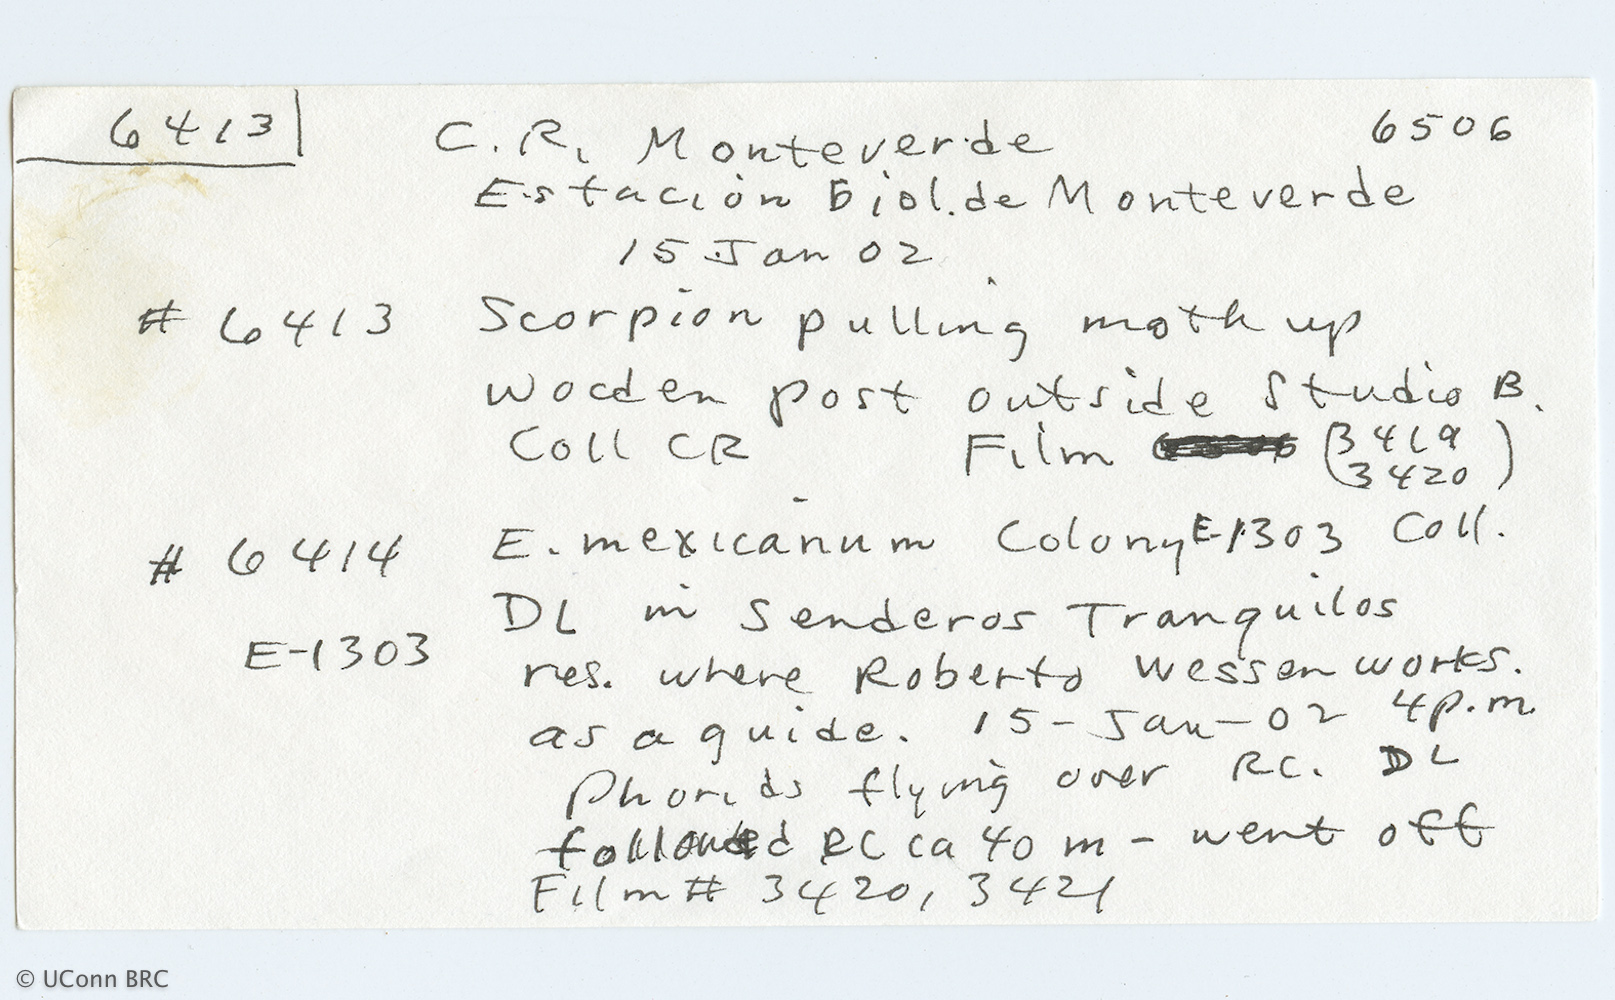 6413
C.R. Monteverde 6506
Estación Biol. de Monteverde
15 Jan 02
# 6413 Scorpion pulling moth up
wooden post outside Studio B.
Coll CR Film (3419
3420)
# 6414 E. mexicanum Colony E-1303 Coll.
DL in Senderos Tranquilos
E-1303
res. where Roberto Wessen works.
as a guide. 15-Jan-02 4p.m.
Phorids flying over RC. DL
followed RC ca 40 m - went off
Film # 3420, 3421
© UConn BRC